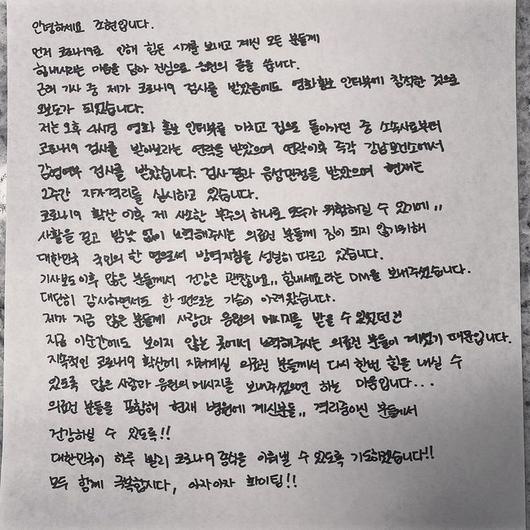 안녕하세요 조현입니다.
먼저 코로나19로 인해 힘든 시기를 보내고 계신 모든 분들께
힘내시라는 마음을 담아 진심으로 응원의 글을 씁니다.
근래 기사 중 제가 코로나19 검사를 받았음에도 영화홍보 인터뷰에 참석한 것으로
보도가 되었습니다.
저는 오후 4시경 영화 홍보 인터뷰를 마치고 집으로 돌아가던 중 소속사로부터
코로나19 검사를 받아보라는 연락을 받았으며 연락이후 즉각 강남보건소에서
감염여부 검사를 받았습니다. 검사결과 음성판정을 받았으며 현재는
2주간 자가격리를 실시하고 있습니다.
코로나19 확산 이후 제 사소한 부주의 하나로 모두가 위험해질 수 있기에,,
사활을 걸고 밤낮 없이 노력해주시는 의료진 분들께 짐이 되지 않기위해
대한민국 국민의 한 명으로써 방역지침을 성실히 따르고 있습니다.
기사보도이후 많은 분들께서 건강은 괜찮냐,, 힘내세요 라는 DM을 보내주셨습니다.
대단히 감사하면서도 한 편으로는 가슴이 아려왔습니다.
제가 지금 많은 분들께 사랑과 응원의 메시지를 받을 수 있었던건
지금 이순간에도 보이지 않는 곳에서 노력해주시는 의료진 분들이 계셨기 때문입니다.
지속적인 코로나19 확산에 지쳐계실 의료진 분들께서 다시 한번 힘을 내실 수
있도록 많은 사랑과 응원의 메시지를 보내주셨으면 하는 마음입니다...
의료진 분들을 포함해 현재 병원에 계신분들,, 격리중이신 분들께서
건강하실 수 있도록!!
대한민국이 하루 빨리 코로나19 종식을 이뤄낼 수 있도록 기도하겠습니다!!
모두 함께 극복합시다, 아자아자 화이팅!!